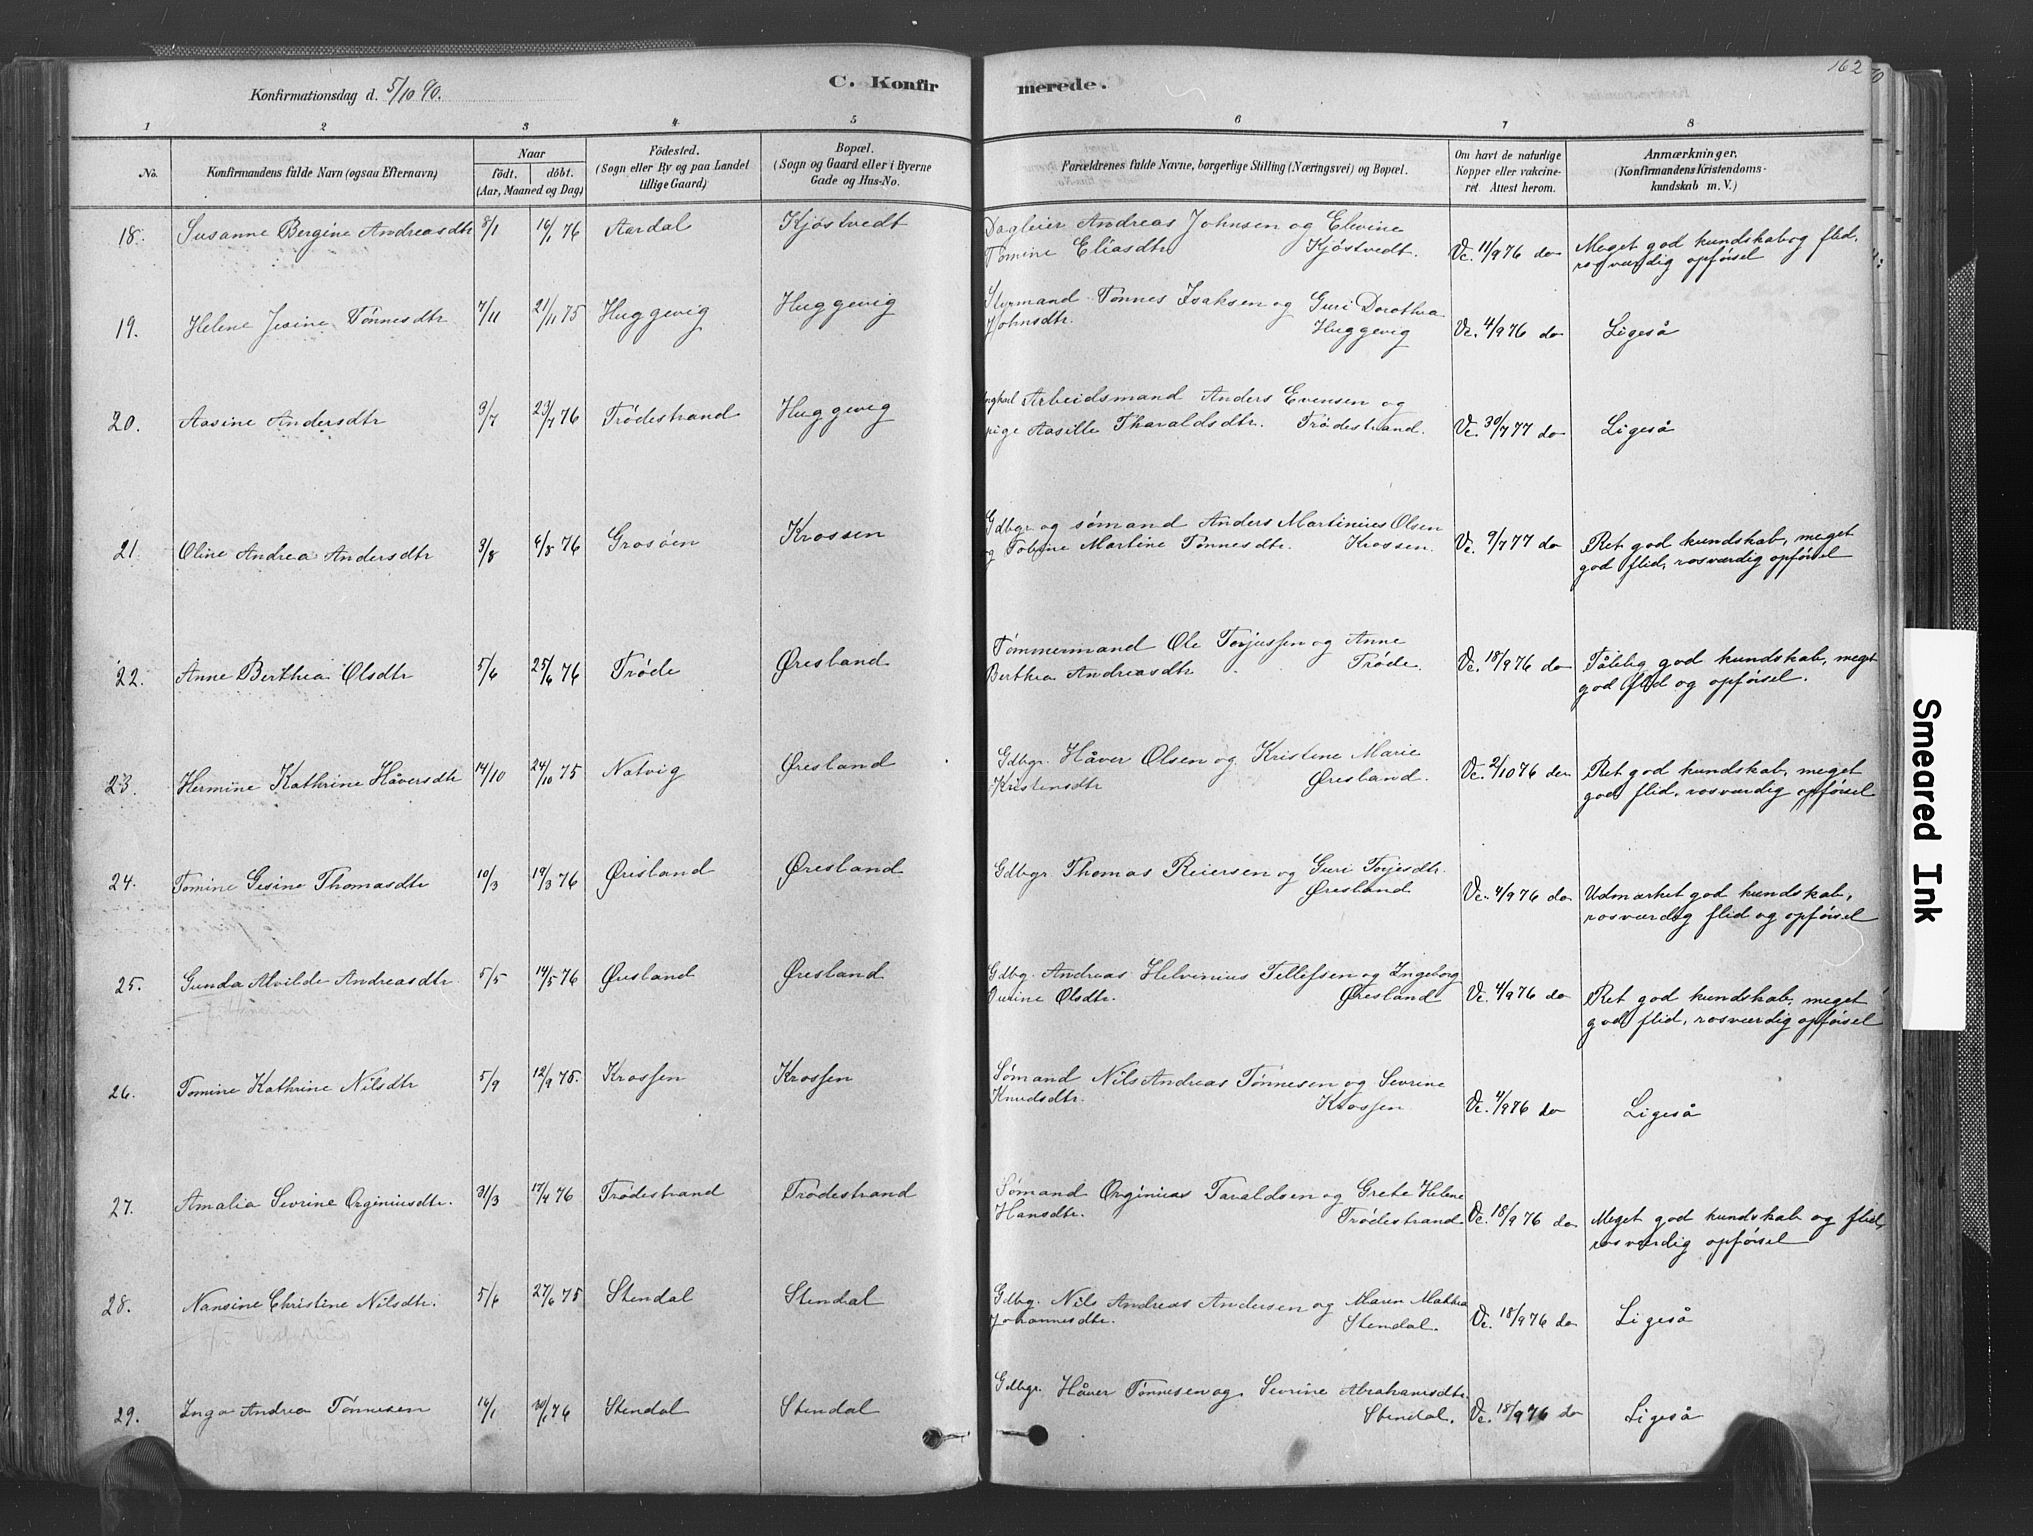 Konfirmationsdag d. 5/10 90.
C. Konfirmerede.
162
1 2 3 4 5 6 7 8
No.
Konfirmandens fulde Navn (ogsaa Efternavn)
Naar
födt. döbt.
(Aar, Maaned og Dag)
Födested.
(Sogn eller By og paa Landet
tillige Gaard)
Bopæl.
(Sogn og Gaard eller i Byerne
Gade og Hus-No.
Forældrenes fulde Navne, borgerlige Stilling (Næringsvei) og Bopæl.
Om havt de naturlige
Kopper eller vakcine-
ret. Attest herom.
Anmærkninger.
(Konfirmandens Kristendoms-
kundskab m. V.)
18. Susanne Bergine Andreasdtr 8/1 16/1 76 Aardal Kjöstvedt Dagleier Andreas Johnsen og Elevine
Tomine Eliasdtr Kjöstvedt. Vc. 11/9 76 do Meget god kundskab og flid,
rosværdig opførsel
19. Helene Jesine Tönnesdtr 7/11 21/11 75 Huggevig Huggevig Styrmand Tönnes Isaksen og Guri Dorothea
Johnsdtr. Huggevig Vc. 4/9 76 do Ligeså
20. Aasine Andersdtr 9/7 23/7 76 Trödestrand Huggevig Ungkarl Arbeidsmand Anders Evensen og
pige Aasille Tharaldsdtr. Trödestrand. Vc. 30/7 77 do Ligeså
21. Oline Andrea Andersdtr 3/8 6/8 76 Grosöen Krossen Gdbgr og sømand Anders Martinius Olsen
og Tobine Martine Tönnesdtr. Krossen. Vc. 9/7 77 do Ret god kundskab, meget
god flid, rosværdig opførsel
22. Anne Berthea Olsdtr 5/6 25/6 76 Tröde Øresland Tømmermand Ole Torjussen og Anne
Berthea Andreasdtr Tröde. Vc. 18/9 76 do Tålelig god kundskab, meget
god flid og opførsel.
23. Hermine Kathrine Håversdtr 14/10 24/10 75 Natvig Øresland Gdbgr. Håver Olsen og Kristine Marie
Kristensdtr Øresland. Vc. 2/10 76 do Ret god kundskab, meget
god flid, rosværdig opførsel
24. Tomine Gesine Thomasdtr 10/3 19/3 76 Øresland Øresland Gdbgr. Thomas Reiersen og Guri Torjesdtr.
Øresland. Vc. 4/9 76 do Udmærket god kundskab,
rosværdig flid og opførsel
25. Gunda Alvilde Andreasdtr. 5/5 14/5 76 Øresland Øresland Gdbg. Andreas Helvinius Tellefsen og Ingeborg
Olsdtr. Øresland Vc. 4/9 76 do Ret god kundskab, meget
god flid, rosværdig opførsel
26. Tomine Kathrine Nilsdtr 5/9 12/9 75. Krossen Krossen Sømand Nils Andreas Tönnesen og Sevrine
Knudsdtr. Krossen Vc. 4/9 76 do Ligeså
27. Amalia Sevrine Orginiusdtr. 31/3 17/4 76 Trödestrand Trödestrand Sømand Orginius Taraldsen og Grete Helene
Hansdtr. Trödestrand Vc. 18/9 76 do Meget god kundskab og flid,
rosværdig opførsel
28. Nansine Christine Nilsdtr. 5/6 27/6 75 Stendal Stendal Gdbg. Nils Andreas Andersen og Maren Mathea
Johannesdtr. Stendal. Vc. 18/9 76 do Ligeså
29. Inga Andrea Tönnesen 16/1 30/1 76 Stendal Stendal Gdbgr. Håver Tönnesen og Sevrine Abrahamsdtr.
Stendal. Vc. 18/9 76 do Ligeså
Smeared Ink